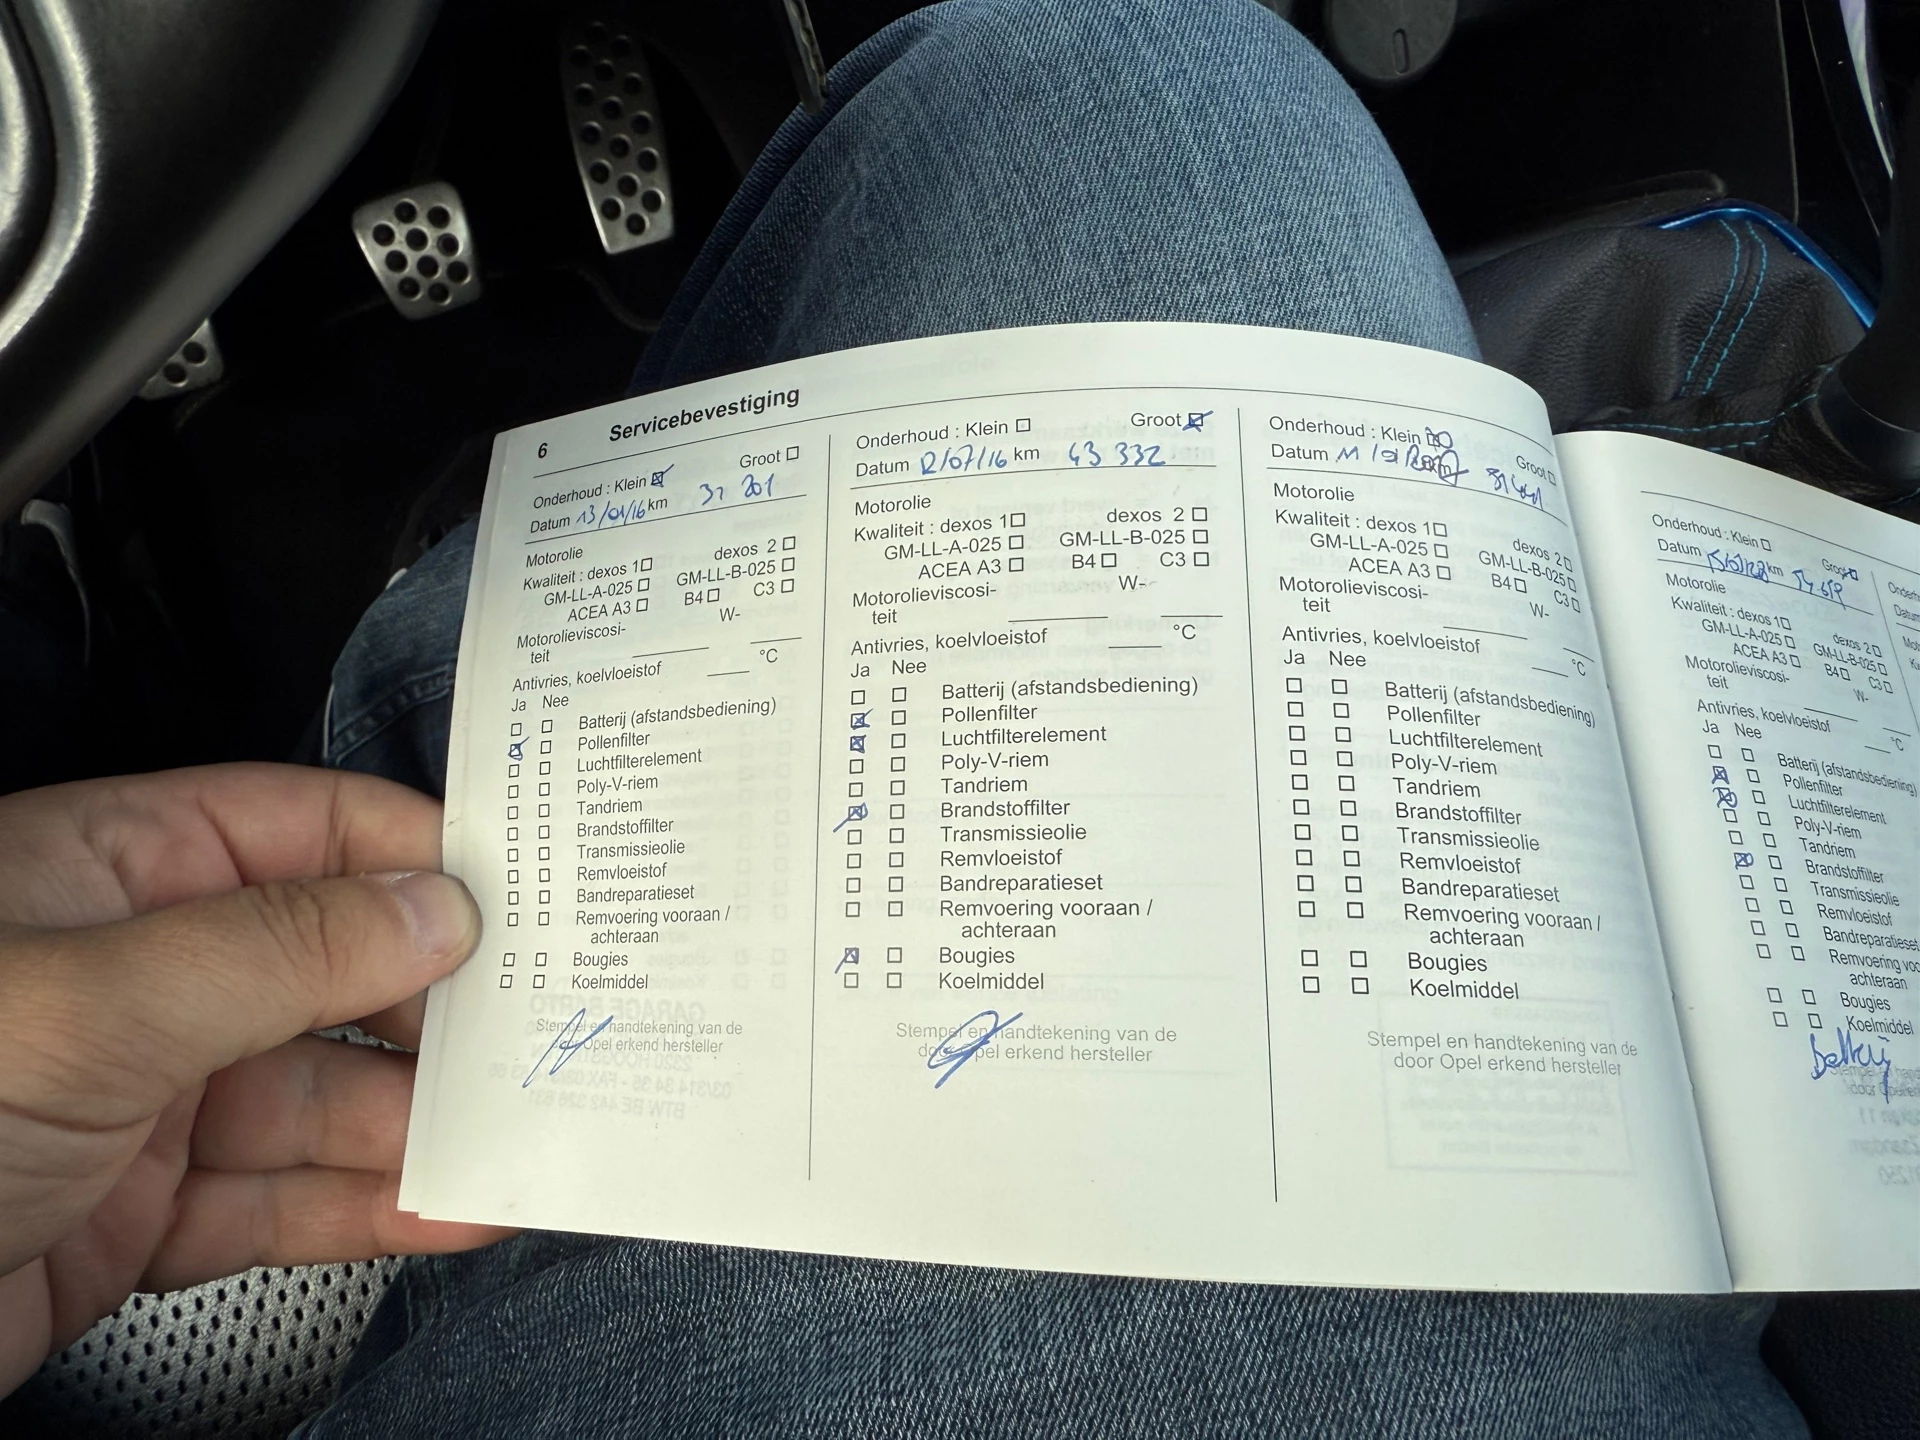 6 Servicebevestiging
Onderhoud : Klein Groot
Datum 13/01/16 km 31 201
Motorolie
Kwaliteit : dexos 1 dexos 2
GM-LL-A-025 GM-LL-B-025
ACEA A3 B4 C3
Motorolieviscosi- W-
teit
Antivries, koelvloeistof °C
Ja Nee
Batterij (afstandsbediening)
Pollenfilter
Luchtfilterelement
Poly-V-riem
Tandriem
Brandstoffilter
Transmissieolie
Remvloeistof
Bandreparatieset
Remvoering vooraan /
achteraan
Bougies
Koelmiddel
Stempel en handtekening van de
door Opel erkend hersteller
Onderhoud : Klein Groot
Datum 12/07/16 km 43 332
Motorolie
Kwaliteit : dexos 1 dexos 2
GM-LL-A-025 GM-LL-B-025
ACEA A3 B4 C3
Motorolieviscosi- W-
teit
Antivries, koelvloeistof °C
Ja Nee
Batterij (afstandsbediening)
Pollenfilter
Luchtfilterelement
Poly-V-riem
Tandriem
Brandstoffilter
Transmissieolie
Remvloeistof
Bandreparatieset
Remvoering vooraan /
achteraan
Bougies
Koelmiddel
Stempel en handtekening van de
door Opel erkend hersteller
Onderhoud : Klein Groot
Datum km
Motorolie
Kwaliteit : dexos 1 dexos 2
GM-LL-A-025 GM-LL-B-025
ACEA A3 B4 C3
Motorolieviscosi- W-
teit
Antivries, koelvloeistof °C
Ja Nee
Batterij (afstandsbediening)
Pollenfilter
Luchtfilterelement
Poly-V-riem
Tandriem
Brandstoffilter
Transmissieolie
Remvloeistof
Bandreparatieset
Remvoering vooraan /
achteraan
Bougies
Koelmiddel
Stempel en handtekening van de
door Opel erkend hersteller
Onderhoud : Klein Groot
Datum km
Motorolie
Kwaliteit : dexos 1 dexos 2
GM-LL-A-025 GM-LL-B-025
ACEA A3 B4 C3
Motorolieviscosi- W-
teit
Antivries, koelvloeistof °C
Ja Nee
Batterij (afstandsbediening)
Pollenfilter
Luchtfilterelement
Poly-V-riem
Tandriem
Brandstoffilter
Transmissieolie
Remvloeistof
Bandreparatieset
Remvoering voo
achteraan
Bougies
Koelmiddel